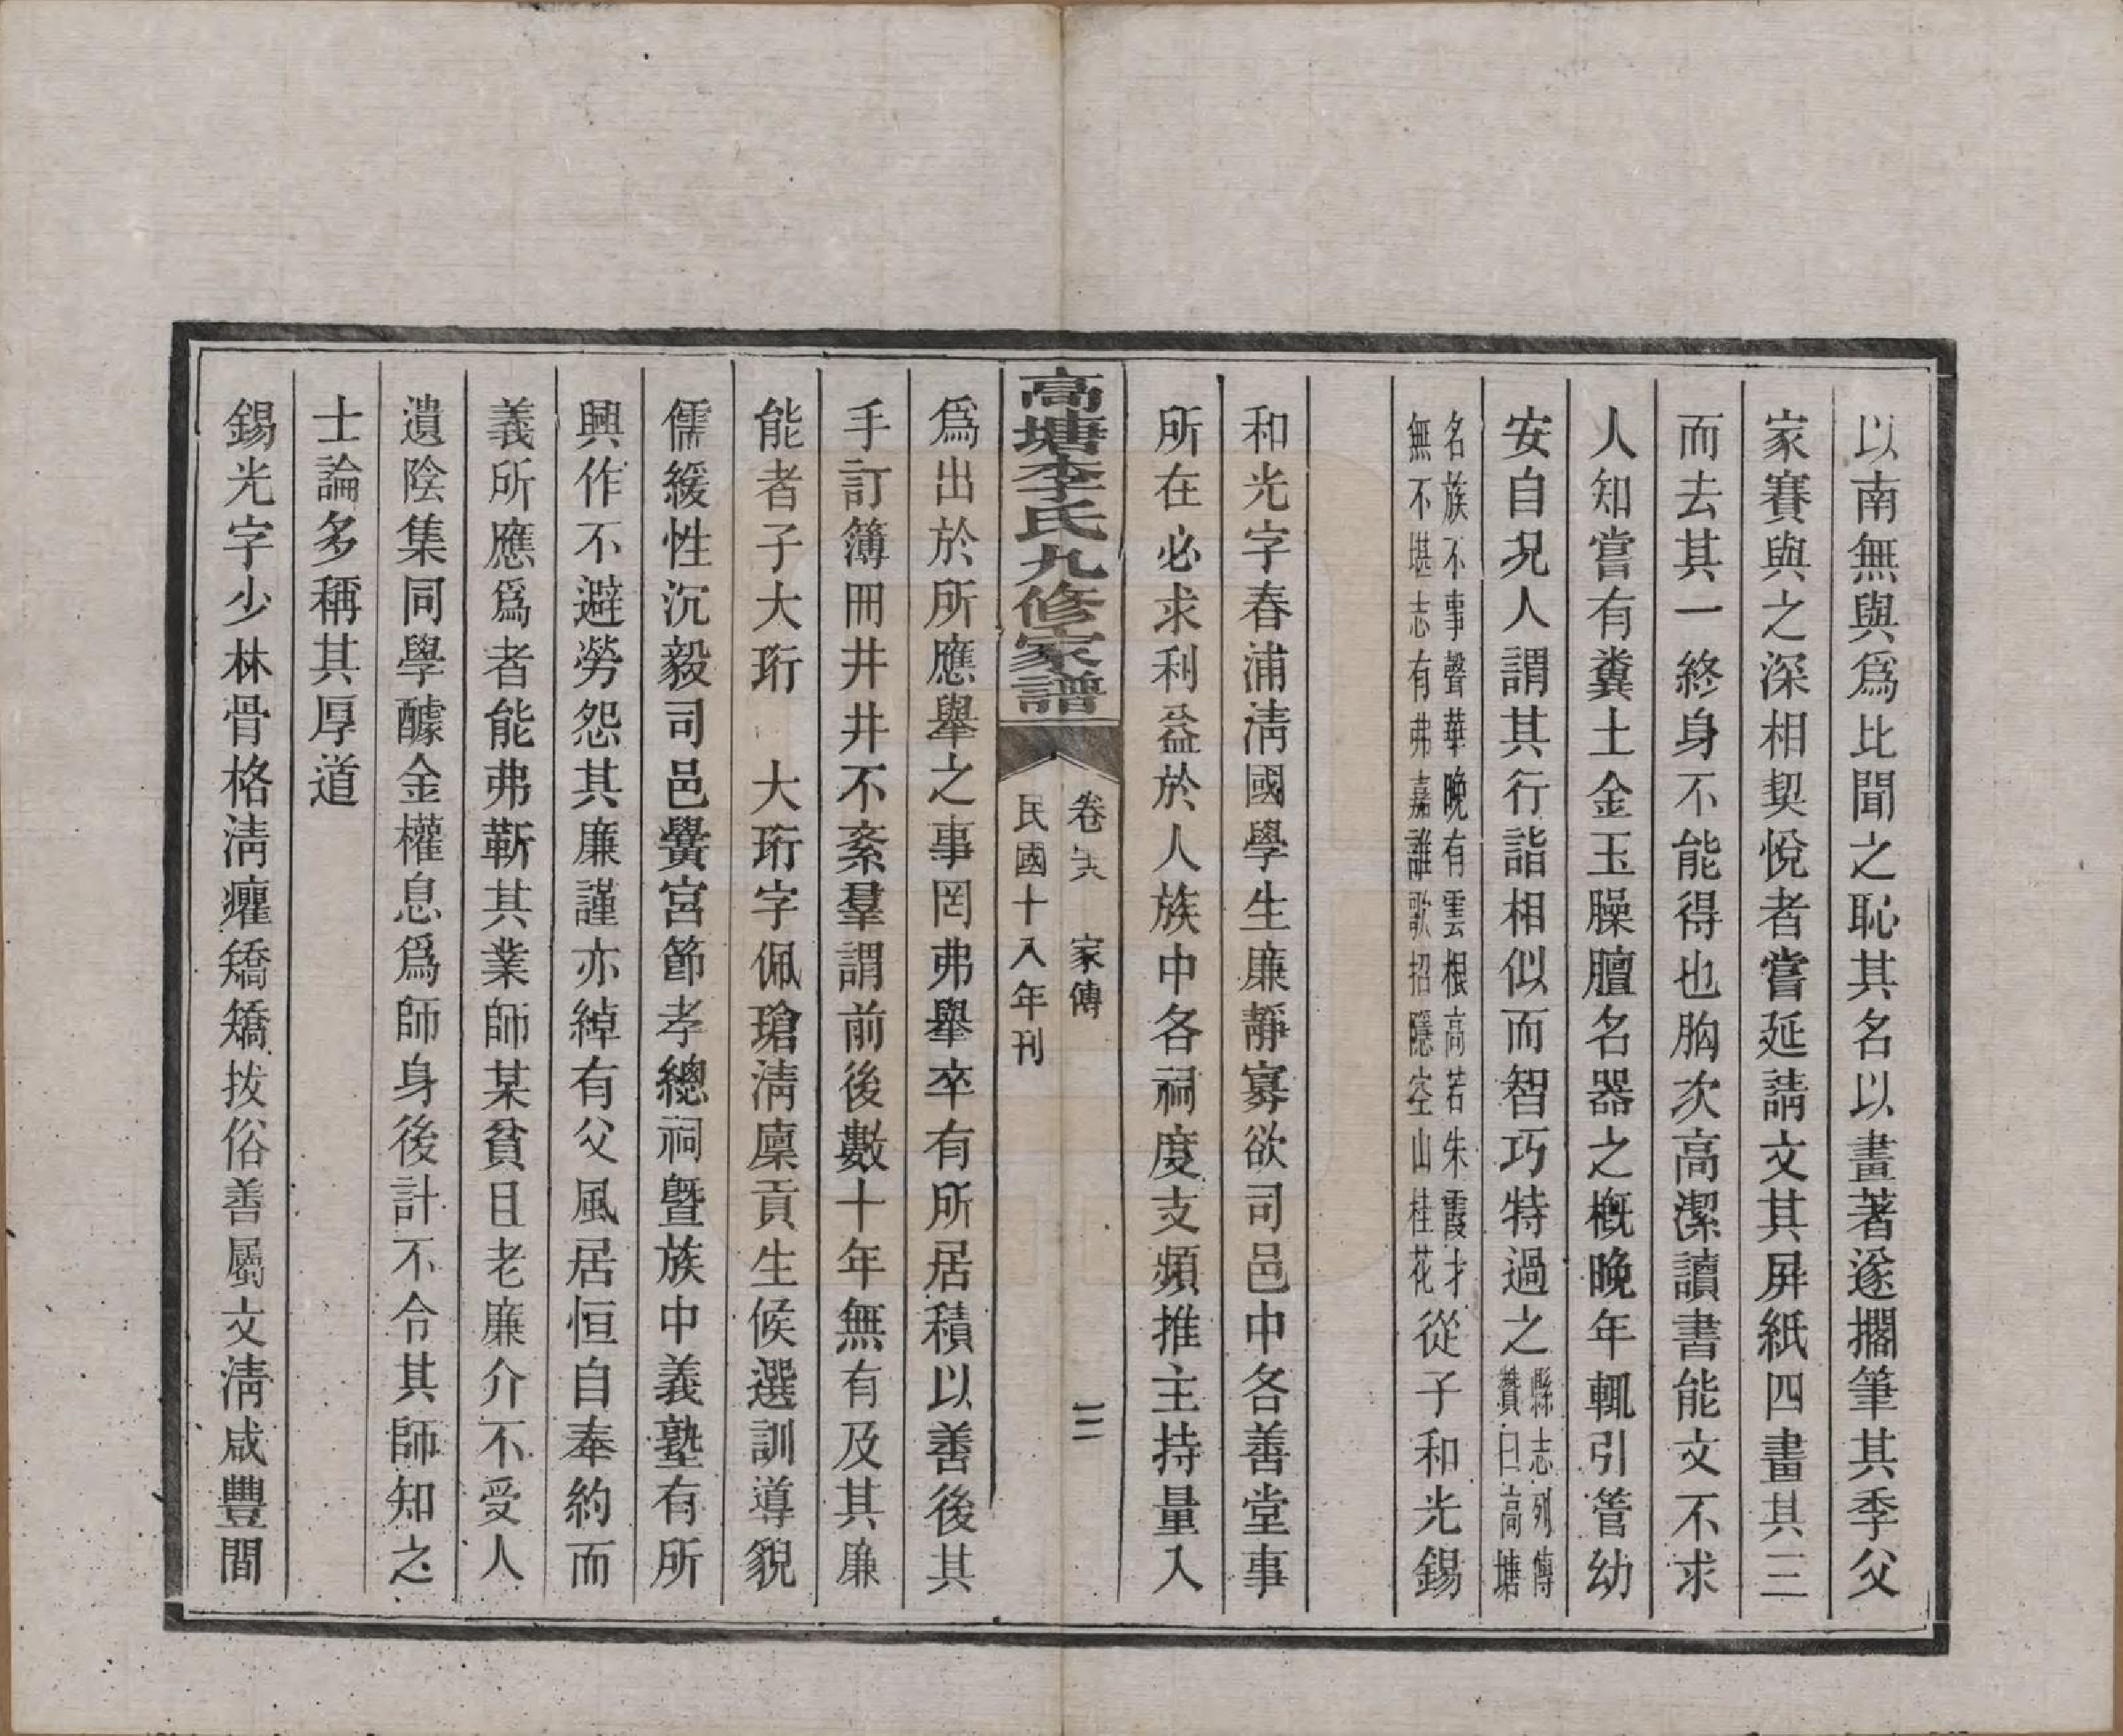 以南無與爲比聞之恥其名以畫著遂擱筆其季父
家賽與之深相契悅者嘗延請文其屏紙四畫其三
而去其一終身不能得也胸次高潔讀書能文不求
人知嘗有糞土金玉臊膻名器之概晚年輒引管幼
安自況人謂其行詣相似而智巧特過之縣志列傳贊曰高塘
名族不事聲華晚有雲根高若朱霞才無不堪志有弗嘉誰歌招隱空山桂花從子和光錫
和光字春浦淸國學生廉靜寡欲司邑中各善堂事
所在必求利益於人族中各祠度支頻推主持量入
高塘李氏九修家譜
卷 家傳
三
民國十八年刊
爲出於所應舉之事罔弗舉卒有所居積以善後其
手訂簿冊井井不紊羣謂前後數十年無有及其廉
能者子大珩 大珩字佩瑲淸廩貢生候選訓導貌
儒緩性沉毅司邑黌宮節孝總祠曁族中義塾有所
興作不避勞怨其廉謹亦綽有父風居恒自奉約而
義所應爲者能弗靳其業師某貧且老廉介不受人
遺陰集同學醵金權息爲師身後計不令其師知之
士論多稱其厚道
錫光字少林骨格淸癯矯矯拔俗善屬文淸咸豐間